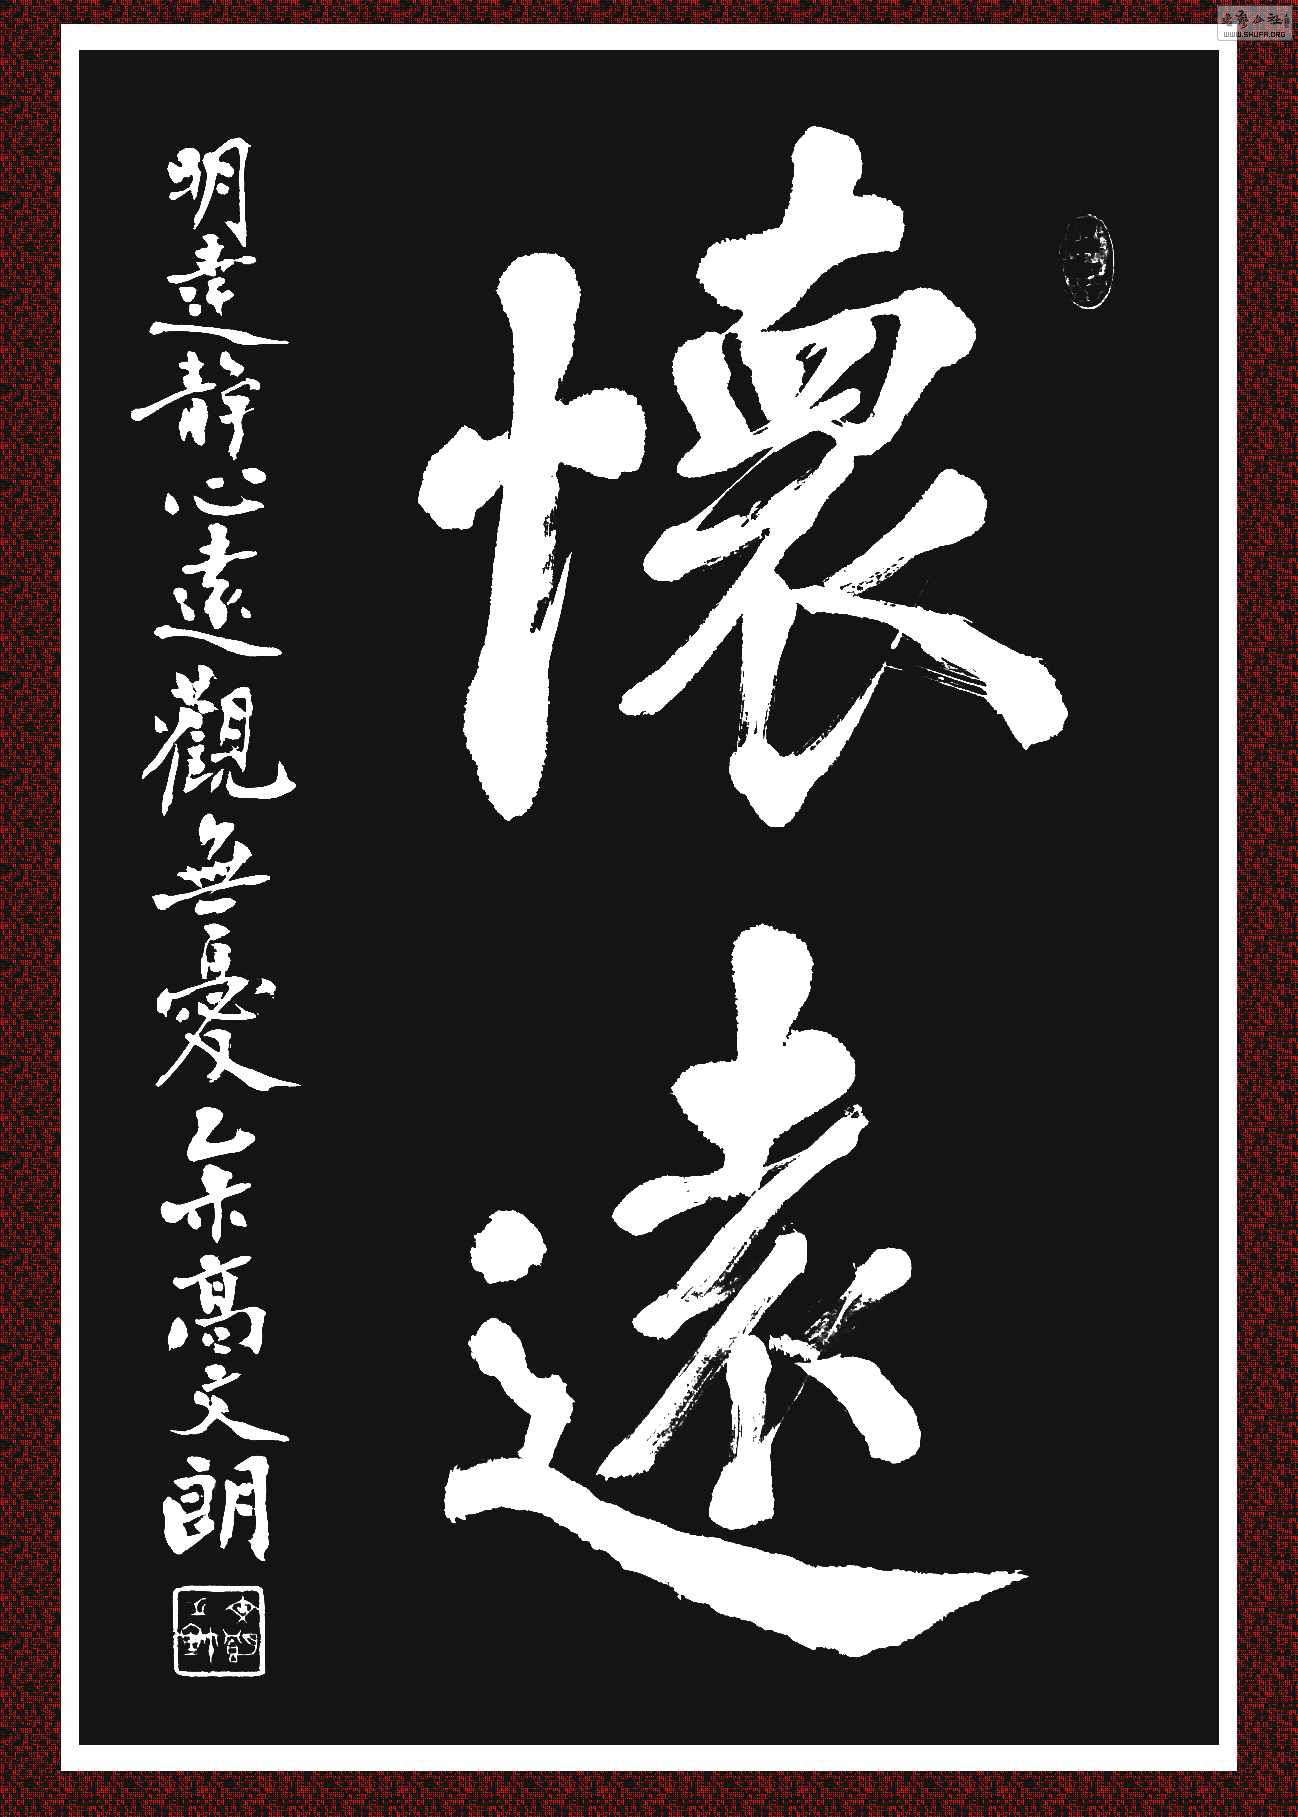 懷遠
明達靜心遠觀無憂乙未高文朗
WWW.SHUFA.ORG